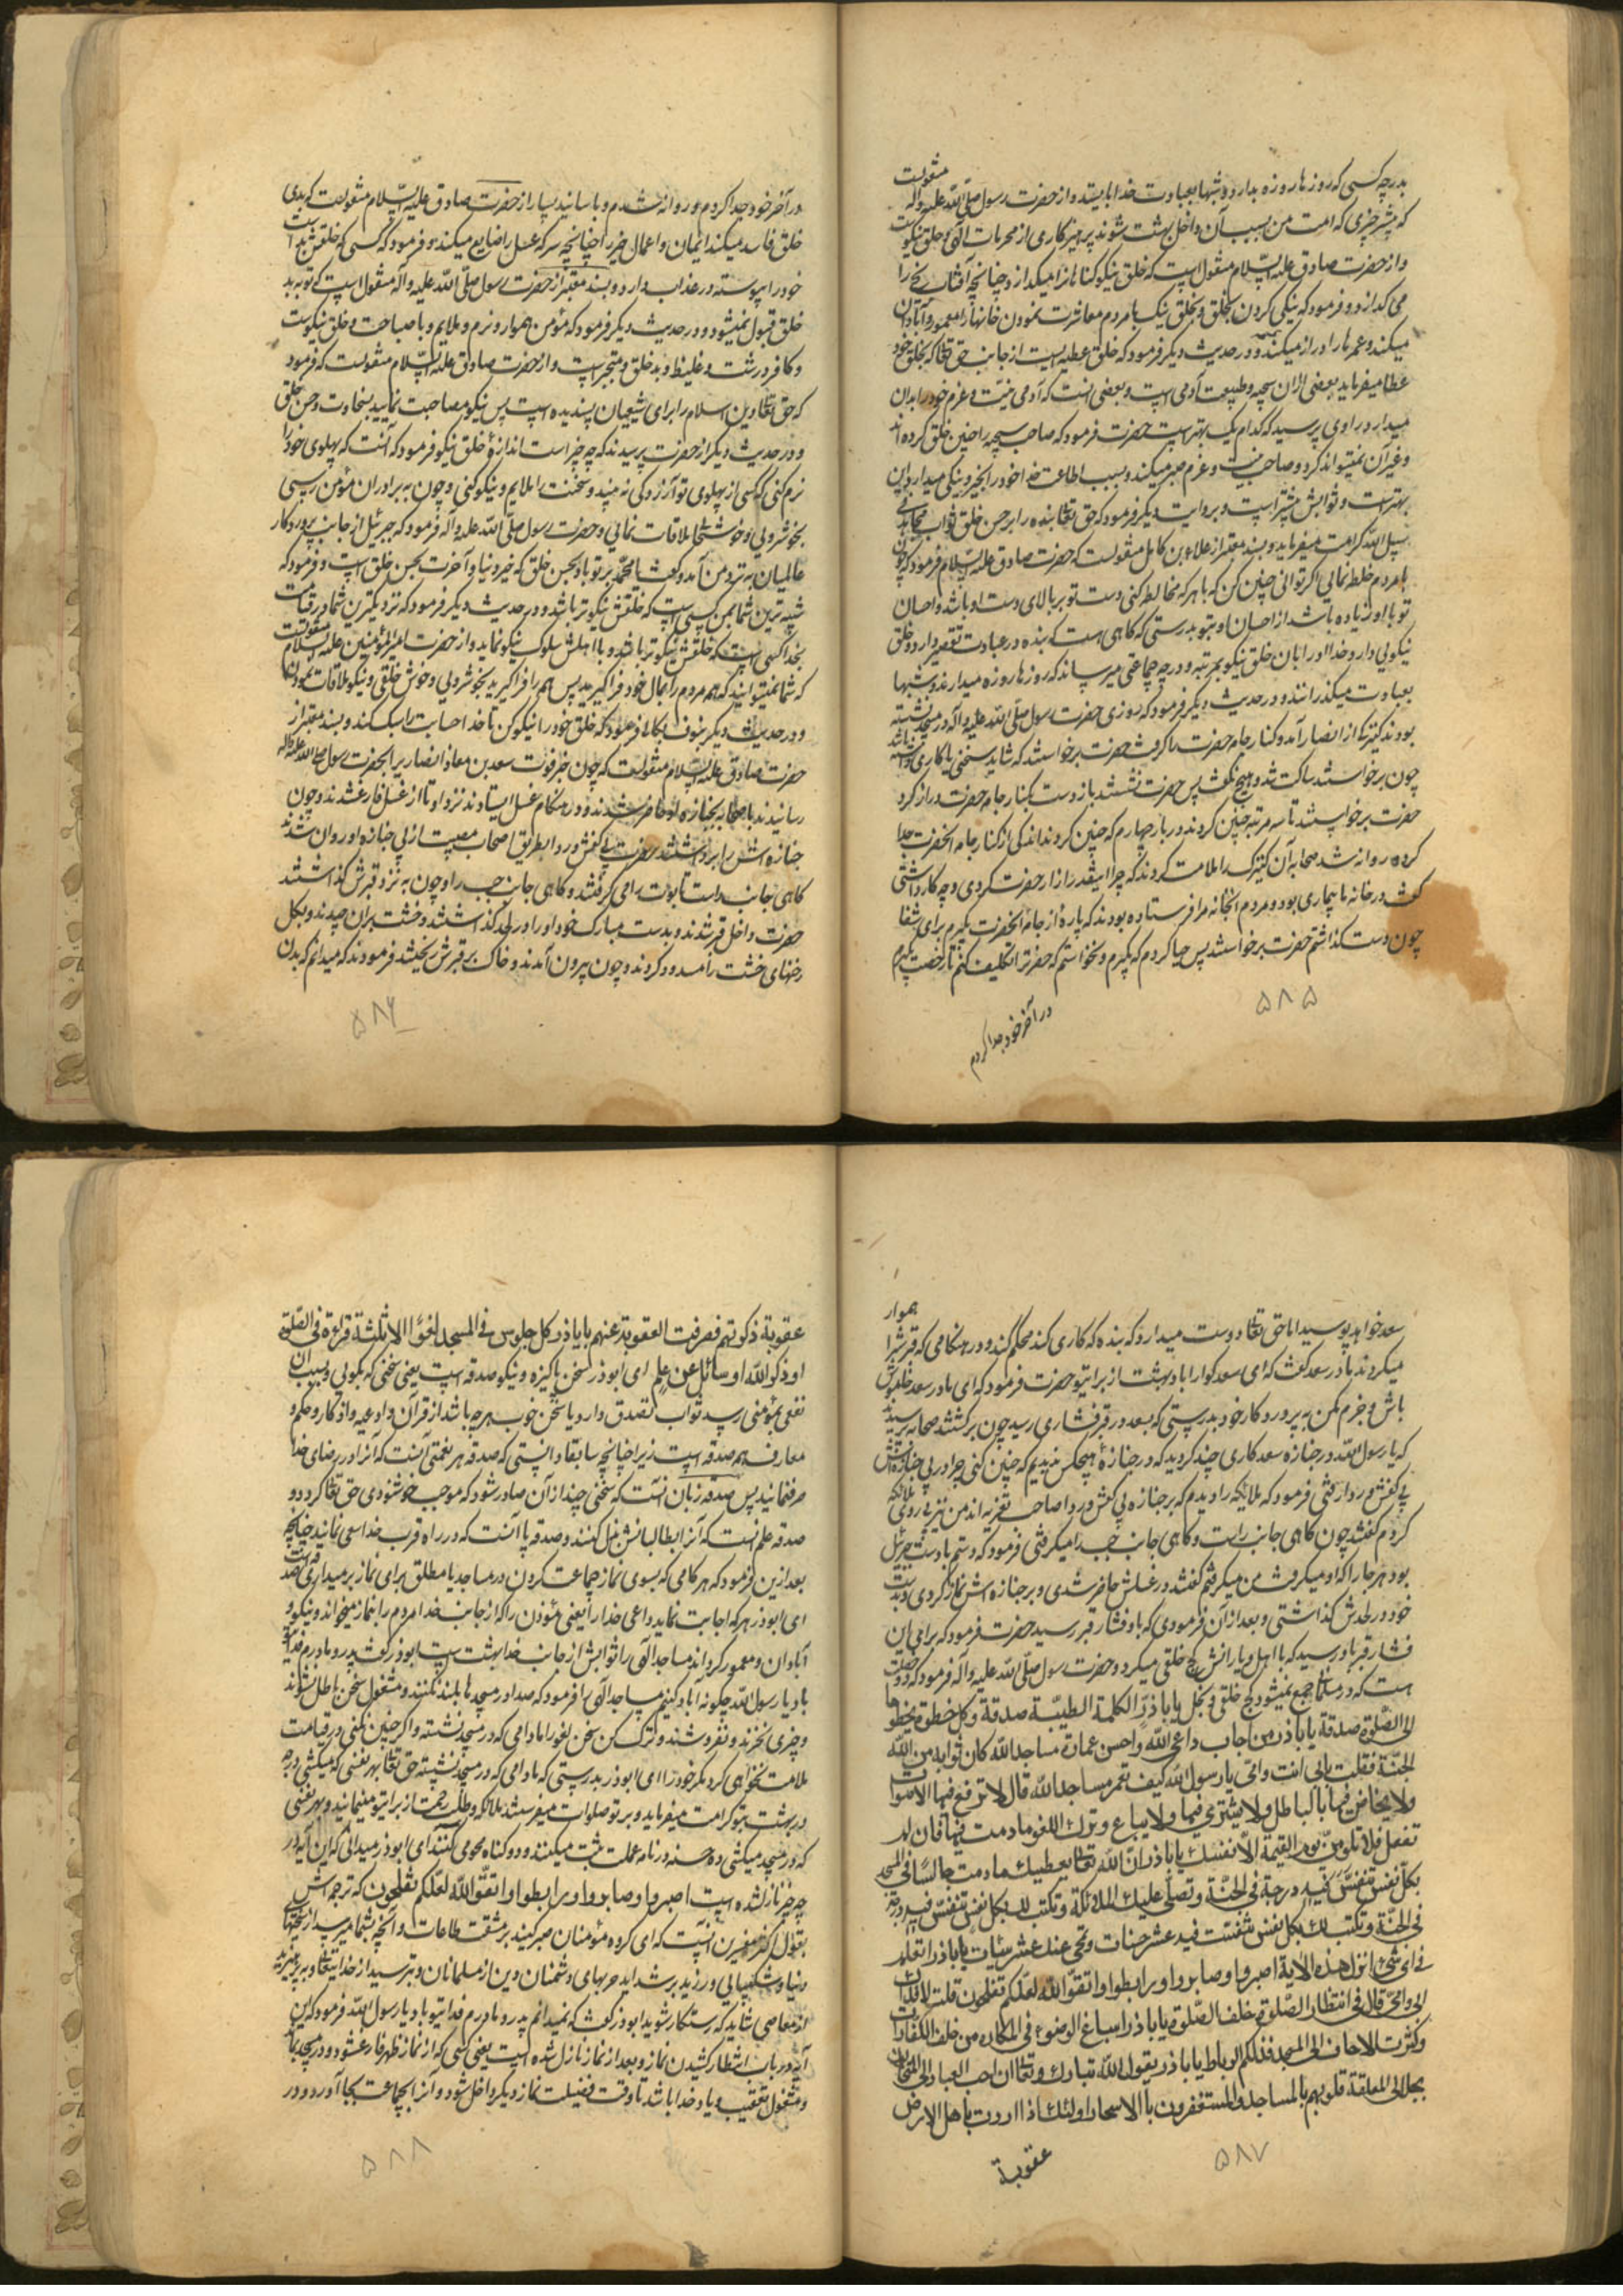 بدرجه کسی که روزها روزه بدارد و شبها بعبادت خدا بایستد و از حضرت رسول صلی الله علیه و آله منقولست
که بیشتر چیزی که امت من بسبب آن داخل بهشت شوند پرهیزکاری از محرمات الهی و خلق نیکوست
و از حضرت صادق علیه السلام منقول است که خلق نیکو گناهانرا میگدازد چنانچه آفتاب یخ را
می گدازد و فرمود که نیکی کردن بخلق و بخلق نیک با مردم معاشرت نمودن خانها را معمور و آبادان
میکند و عمرها را دراز میکند و در حدیث دیگر فرمود که خلق عطیه ایست از جانب حق تعالی که بخلق خود
عطا میفرماید بعضی ازان سجیه و طبیعت آدمی است و بعضی انست که آدمی نیت و عزم خود را بدان
میدارد راوی پرسید که کدام یک بهتر است حضرت فرمود که صاحب سجیه را چنین خلق کرده اند
و غیر آن نمیتواند کرد و صاحب نیت و عزم صبر میکند و بسبب اطاعت خدا خود را بخیر و نیکی میدارد این
بهتر است و ثوابش بیشتر است و بروایت دیگر فرمود که حق تعالی بنده را بر حسن خلق ثواب مجاهد فی
سبیل الله کرامت میفرماید و بسند معتبر از علاء بن کامل منقولست که حضرت صادق علیه السلام فرمود که چون
با مردم خلطه نمائی اگر توانی چنین کن که با هر که مخالطه کنی دست تو بر بالای دست او باشد و احسان
تو با او زیاده باشد از احسان او بتو بدرستی که گاهی هست که بنده در عبادت تقصیر دارد و خلق
نیکوئی دارد و خدا او را بان خلق نیکو بمرتبه و درجه جماعتی میرساند که روزها روزه میدارند و شبها
بعبادت میگذرانند و در حدیث دیگر فرمود که روزی حضرت رسول صلی الله علیه و آله در مسجد نشسته
بودند کنیزکی از انصار آمد و کنار جامه حضرت را گرفت حضرت برخواستند که شاید سخنی یا کاری داشته باشد
چون برخواستند ساکت شد و هیچ نگفت پس حضرت نشستند باز دست بکنار جامه حضرت دراز کرد
حضرت برخواستند تا سه مرتبه چنین کردند و در بار چهارم که چنین کردند اندکی از کنار جامه آنحضرت جدا
کرده روانه شد صحابه آن کنیزک را ملامت کردند که چرا اینقدر آزار حضرت کردی و چه کار داشتی
گفت در خانه ما بیماری بود و مردم انخانه مرا فرستاده بودند که پارهٔ از جامه آنحضرت بگیرم برای شفا
چون دست گذاشتم حضرت برخواستند پس حیا کردم که بگیرم و نخواستم که حضرترا تکلیف کنم تا رخصت بگیرم
در آخر خود جدا کردم
۵۸۵
در آخر خود جدا کردم و روانه شدم و باسانید بسیار از حضرت صادق علیه السلام منقولست که بدی
خلق فاسد میکند ایمان و اعمال خیر را چنانچه سرکه عسل را ضایع میکند و فرمود که کسی که خلقش بد است
خود را پیوسته در عذاب دارد و بسند معتبر از حضرت رسول صلی الله علیه و آله منقول است که توبه بد
خلق قبول نمیشود و در حدیث دیگر فرمود که مؤمن هموار و نرم و ملایم و با صباحت و خلق نیکوست
و کافر درشت و غلیظ و بد خلق و متجبر است و از حضرت صادق علیه السلام منقولست که فرمود
که حق تعالی دین اسلام را برای شیعیان پسندیده است پس نیکو مصاحبت نمایید بسخاوت و حسن خلق
و در حدیث دیگر از حضرت پرسیدند که چه چیز است اندازهٔ خلق نیکو فرمود که آنست که پهلوی خود را
نرم کنی که کسی از پهلوی تو آزردگی نه بیند و سخنت را ملایم و نیکو کنی و چون به برادران مؤمن رسی
بخوشروئی و خوشحالی ملاقات نمائی و حضرت رسول صلی الله علیه و آله فرمود که جبرئیل از جانب پروردگار
عالمیان به نزد من آمد و گفت یا محمد بر تو باد بحسن خلق که خیر دنیا و آخرت بحسن خلق است و فرمود که
شبیه ترین شما بمن کسی است که خلقش نیکوتر باشد و در حدیث دیگر فرمود که نزدیکترین شما در قیامت
بخدا کسی است که خلقش نیکوتر باشد و با اهلش سلوک نیکو نماید و از حضرت امیر المؤمنین علیه السلام منقولست
که شما نمیتوانید که همه مردم را بمال خود فرا گیرید پس همه را فرا گیرید بخوشروئی و خوش خلقی و نیکو ملاقات نمودن
و در حدیث دیگر بنوف بکالی فرمود که خلق خود را نیکو کن تا خدا حسابت را سبک کند و بسند معتبر از
حضرت صادق علیه السلام منقولست که چون خبر فوت سعد بن معاذ انصاری را بحضرت رسول صلی الله علیه و آله
رسانیدند با صحابه بجنازه او حاضر شدند و در هنگام غسل ایستادند نزد او تا از غسل فارغ شدند و چون
جنازه اش را برداشتند حضرت بی کفش و ردا بطریق اصحاب مصیبت از پی جنازه او روان شدند
گاهی جانب راست تابوت را می گرفتند و گاهی جانب چپ را و چون به نزد قبرش گذاشتند
حضرت داخل قبر شدند و بدست مبارک خود او را در لحد گذاشتند و خشت بران چیدند و بگل
رخنهای خشت را مسدود کردند و چون بیرون آمدند و خاک بر قبرش ریختند فرمودند که میدانم که بدن
۵۸۶
سعد خواهد پوسید اما حق تعالی دوست میدارد که بنده که کاری کند محکم کند و در هنگامی که قبر را هموار
میکردند مادر سعد گفت که ای سعد گوارا باد بهشت از برای تو حضرت فرمود که ای مادر سعد خاموش
باش و جزم مکن به پروردگار خود بدرستی که بسعد در قبر فشاری رسید چون برگشتند صحابه پرسیدند
که یا رسول الله در جنازه سعد کاری چند کردید که در جنازهٔ هیچکس ندیدیم که چنین کنی چرا در پی جنازه اش
بی کفش و ردا رفتی فرمود که ملائکه را دیدم که بر جنازه بی کفش و ردا صاحب تعزیه اند من نیز پیروی ملائکه
کردم گفتند چون گاهی جانب راست و گاهی جانب چپ را میگرفتی فرمود که دستم با دست جبرئیل
بود هر جا را که او میگرفت من میگرفتم گفتند در غسلش حاضر شدی و بر جنازه اش نماز کردی و بدست
خود در لحدش گذاشتی و بعد از آن فرمودی که باو فشار قبر رسید حضرت فرمود که برای این
فشار قبر باو رسید که با اهل و یارانش کج خلقی میکرد و حضرت رسول صلی الله علیه و آله فرمود که دو خصلت
است که در مسلمان جمع نمیشود کج خلقی و بخل یا باذر الکلمة الطیبة صدقة وکل خطوة یخطوها
الی الصلوة صدقة یا باذر من اجاب داعی الله واحسن عمارة مساجد الله کان ثوابه من الله
الجنة فقلت بابی انت وامی یا رسول الله کیف تعمر مساجد الله قال لا ترفع فیها الاصوات
ولا یخاض فیها بالباطل ولا یشتری فیها ولا یباع وترک اللغو ما دمت فیها فان لم
تفعل فلا تلومن یوم القیمة الا نفسک یا باذر ان الله تعالی یعطیک ما دمت جالسا فی المسجد
بکل نفس تنفست فیه درجة فی الجنة وتصلی علیک الملائکة وتکتب لک بکل نفس تنفست فیه درجة
فی الجنة وتکتب لک بکل نفس تنفست فیه عشر حسنات وتمحی عنک عشر سیئات یا باذر اتعلم
فی ای شئ انزل هذه الایة اصبروا وصابروا ورابطوا واتقوا الله لعلکم تفلحون قلت لا فداک
ابی وامی قال فی انتظار الصلوة خلف الصلوة یا باذر اسباغ الوضوء فی المکاره من الکفارات
وکثرت الاختلاف الی المسجد فذلکم الرباط یا باذر یقول الله تبارک وتعالی ان احب العباد الی المتحابون
بجلالی المعلقة قلوبهم بالمساجد والمستغفرون بالاسحار اولئک اذا اردت باهل الارض
عقوبة
۵۸۷
عقوبة ذکرتهم فصرفت العقوبة عنهم یا باذر کل جلوس فی المسجد لغو الا ثلثة قراءة فی الصلوة
او ذکر الله او سائل عن علم ای ابوذر سخن پاکیزه و نیکو صدقه است یعنی سخنی که بگوئی و بسبب ان
نفعی بمؤمنی رسد ثواب تصدق دارد یا سخن خوب هرچه باشد از قرآن و ادعیه و اذکار و حکم و
معارف همه صدقه است زیرا چنانچه سابقا دانستی که صدقه هر نعمتی آنست که آنرا در رضای خدا
صرف نمائید پس صدقه زبان آنست که سخنی چند از آن صادر شود که موجب خوشنودی حق تعالی گردد و
صدقه علم آنست که آنرا بطالبانش بذل کنند و صدقه پا آنست که در راه قرب خدا سعی نمائید چنانچه
بعد ازین فرمود که هر گامی که بسوی نماز جماعت کردن در مساجد یا مطلق برای نماز برمیداری صدقه است
ای ابوذر هر که اجابت نماید داعی خدا را یعنی مؤذن را که از جانب خدا مردم را بنماز میخواند و نیکو و
آبادان و معمور گرداند مساجد الهی را ثوابش از جانب خدا بهشت است ابوذر گفت پدر و مادرم فدای تو
باد یا رسول الله چگونه آباد کنیم مساجد الهی را فرمود که صدا در مسجدها بلند نکنند و مشغول سخن باطل نشوند
و چیزی نخرند و نفروشند و ترک کن سخن لغو را مادامی که در مسجد نشسته و اگر چنین نکنی در قیامت
ملامت نخواهی کرد مگر خود را ای ابوذر بدرستی که مادامی که در مسجد نشسته حق تعالی بهر نفسی که میکشی درجه
در بهشت بتو کرامت میفرماید و بر تو صلوات میفرستند ملائکه و طلب رحمت از برای تو مینمایند و بهر نفسی
که در مسجد میکشی ده حسنه در نامه عملت ثبت میکنند و ده گناه محو می کنند ای ابوذر میدانی که این آیه در
چه چیز نازل شده است اصبروا وصابروا ورابطوا واتقوا الله لعلکم تفلحون که ترجمه اش
بقول اکثر مفسرین آنست که ای گروه مؤمنان صبر کنید بر مشقت طاعات و آنچه بشما میرسد از سختیهای
دنیا و شکیبائی ورزید بر شداید حربهای دشمنان دین از مسلمانان و بترسید از خدایتعالی و بپرهیزید
از معاصی شاید که رستگار شوید ابوذر گفت که نمیدانم پدر و مادرم فدای تو باد یا رسول الله فرمود که این
آیه در باب انتظار کشیدن نماز بعد از نماز نازل شده است یعنی کسی که از نماز ظهر فارغ شود و در مسجد بماند
و مشغول تعقیب و یاد خدا باشد تا وقت فضیلت نماز دیگر داخل شود و آنرا بجماعت بجا آورد و در
۵۸۸